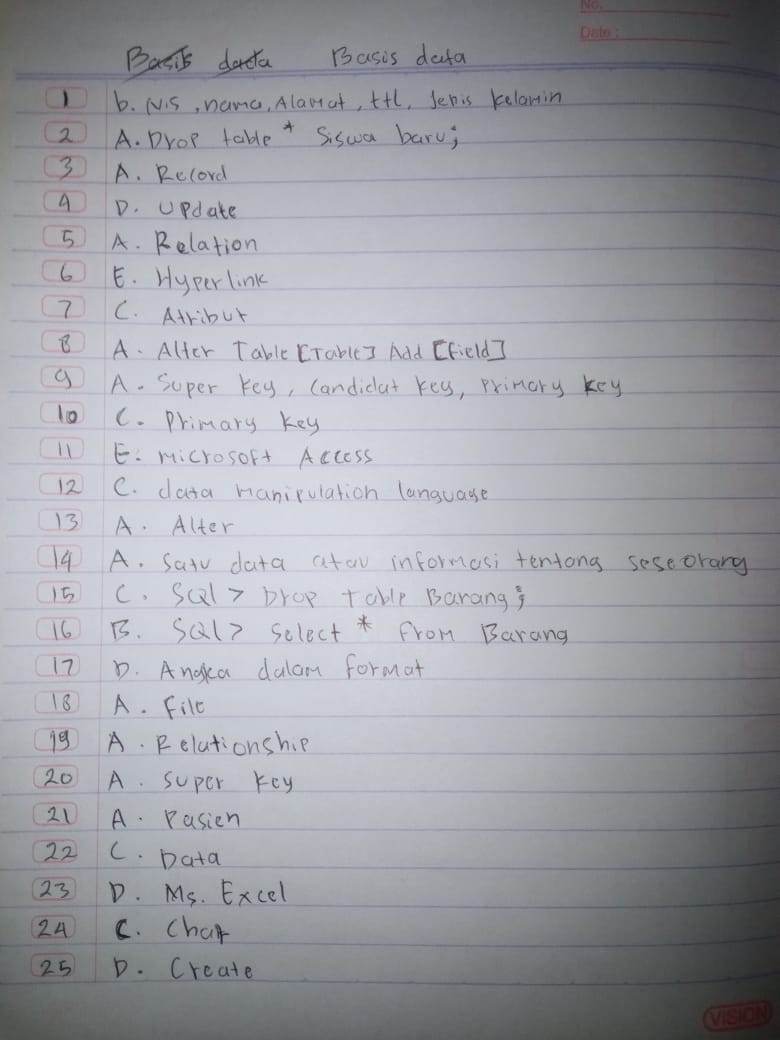 No.
Date :
Basis data Basis data
1 b. NIS, nama, Alamat, ttl, Jenis kelamin
2 A. Drop table * Siswa baru;
3 A. Record
4 D. Update
5 A. Relation
6 E. Hyperlink
7 C. Atribut
8 A. Alter Table [Table] Add [field]
9 A. Super key, Candidat key, Primary key
10 C. Primary key
11 E. Microsoft Access
12 C. data manipulation language
13 A. Alter
14 A. Satu data atau informasi tentang seseorang
15 C. SQL > Drop table Barang;
16 B. SQL > Select * from Barang
17 D. Angka dalam format
18 A. File
19 A. Relationship
20 A. Super key
21 A. Pasien
22 C. Data
23 D. Ms. Excel
24 C. Char
25 D. Create
VISION